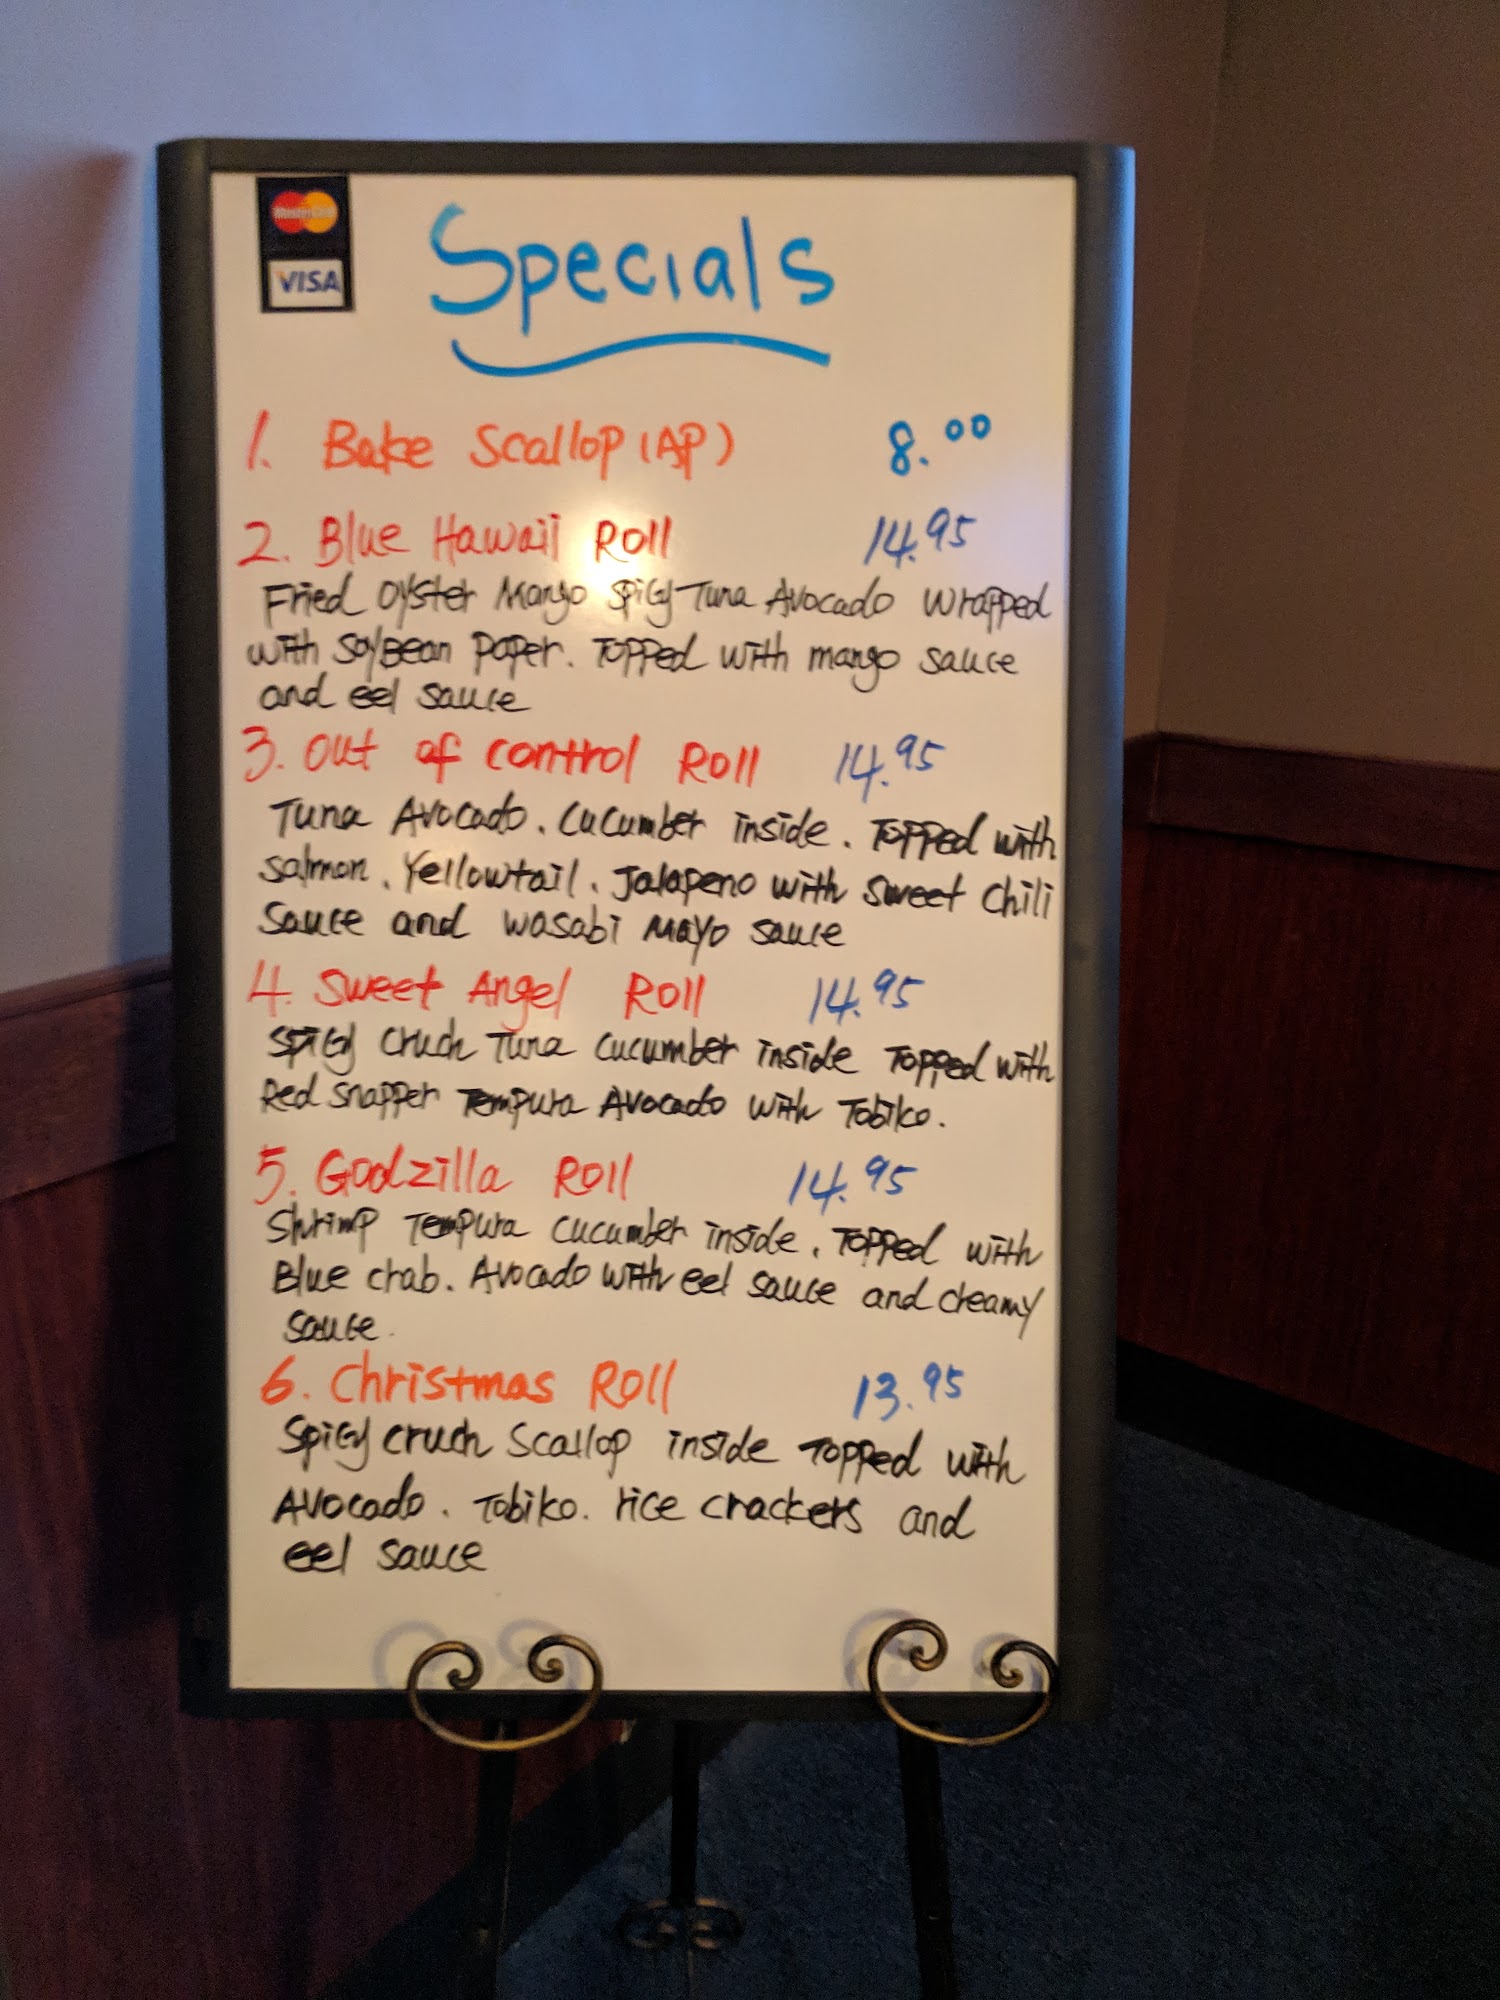 MasterCard
VISA
Specials
1. Bake Scallop (AP) 8.00
2. Blue Hawaii Roll 14.95
Fried Oyster Mango Spicy Tuna Avocado wrapped
with Soybean paper. Topped with mango sauce
and eel sauce
3. Out of control Roll 14.95
Tuna Avocado. Cucumber inside. Topped with
Salmon. Yellowtail. Jalapeno with Sweet Chili
Sauce and wasabi Mayo sauce
4. Sweet Angel Roll 14.95
Spicy Cruch Tuna Cucumber inside Topped with
Red Snapper Tempura Avocado with Tobiko.
5. Godzilla Roll 14.95
Shrimp Tempura Cucumber inside. Topped with
Blue crab. Avocado with eel sauce and creamy
Sauce.
6. Christmas Roll 13.95
Spicy cruch Scallop inside Topped with
Avocado. Tobiko. rice crackers and
eel sauce